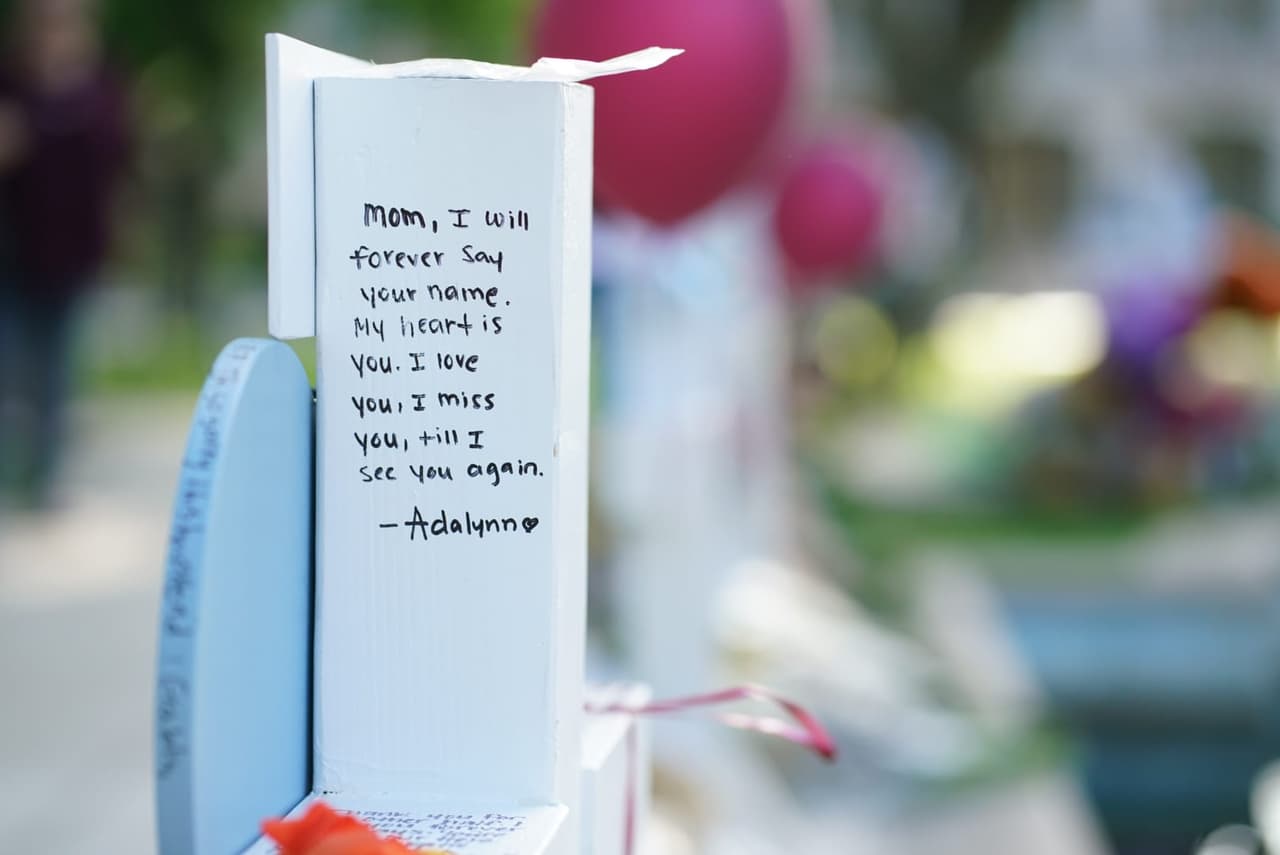 Mom, I will
forever say
your name.
My heart is
you. I love
you, I miss
you, till I
see you again.
- Adalynn♥
you for
forever